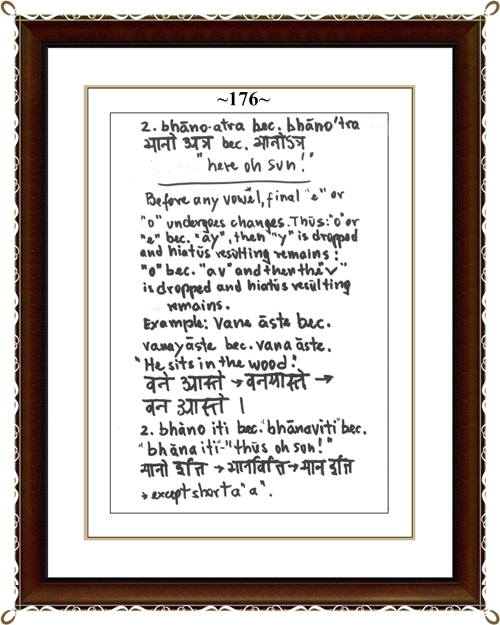 ~176~
2. bhāno-atra bec. bhāno'tra
भानो अत्र bec. भानोऽत्र
"here oh sun!"
Before any vowel, final "e" or
"o" undergoes changes. Thus: "o" or
"e" bec. "ay", then "y" is dropped
and hiatus resulting remains:
"o" bec. "av" and then the "v"
is dropped and hiatus resulting
remains.
Example: Vane āste bec.
vanayāste bec. vana āste.
"He sits in the wood."
वने आस्ते → वनयास्ते →
वन आस्ते ।
2. bhāno iti bec. "bhānaviti" bec.
"bhāna iti" - "thus oh sun!"
भानो इति → भानविति → भान इति
→ except short a "a".